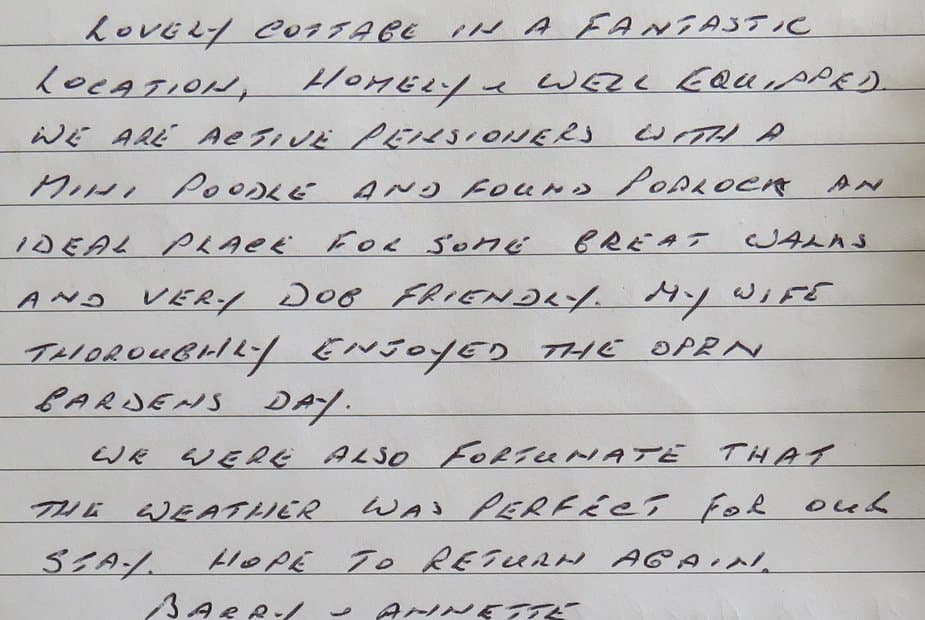 LOVELY COTTAGE IN A FANTASTIC
LOCATION, HOMELY & WELL EQUIPPED.
WE ARE ACTIVE PENSIONERS WITH A
MINI POODLE AND FOUND PORLOCK AN
IDEAL PLACE FOR SOME GREAT WALKS
AND VERY DOG FRIENDLY. MY WIFE
THOROUGHLY ENJOYED THE OPEN
GARDENS DAY.
WE WERE ALSO FORTUNATE THAT
THE WEATHER WAS PERFECT FOR OUR
STAY. HOPE TO RETURN AGAIN.
BARRY & ANNETTE